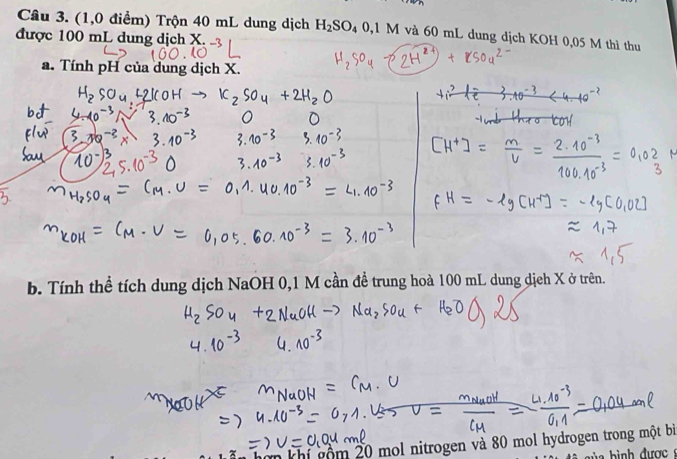 Câu 3. (1,0 điểm) Trộn 40 mL dung dịch H₂SO₄ 0,1 M và 60 mL dung dịch KOH 0,05 M thì thu
được 100 mL dung dịch X.
100.10⁻³ L
H₂SO₄ → 2H²⁺ + SO₄²⁻
a. Tính pH của dung dịch X.
H₂SO₄ + 2KOH → K₂SO₄ + 2H₂O
4.10⁻³ 3.10⁻³ 0 0
3.10⁻³ 3.10⁻³ 3.10⁻³ 3.10⁻³
Sau 10⁻³ 0 3.10⁻³ 3.10⁻³
2,5.10⁻³
3.10⁻³ < 4.10⁻³
[H⁺] = m/V = 2.10⁻³/100.10⁻³ = 0,02 M
3
n H₂SO₄ = C_M . V = 0,1.40.10⁻³ = 4.10⁻³
pH = -lg[H⁺] = -lg[0,02]
≈ 1,7
≈ 1,5
n KOH = C_M . V = 0,05.60.10⁻³ = 3.10⁻³
b. Tính thể tích dung dịch NaOH 0,1 M cần để trung hoà 100 mL dung dịch X ở trên.
H₂SO₄ + 2NaOH → Na₂SO₄ + H₂O
0,25
4.10⁻³ 4.10⁻³
n NaOH = C_M . V
=> 4.10⁻³ = 0,1.V => V = n NaOH/C_M = 4.10⁻³/0,1 = 0,04 ml
=> V = 0,04 ml
khí gồm 20 mol nitrogen và 80 mol hydrogen trong một bì
của bình được